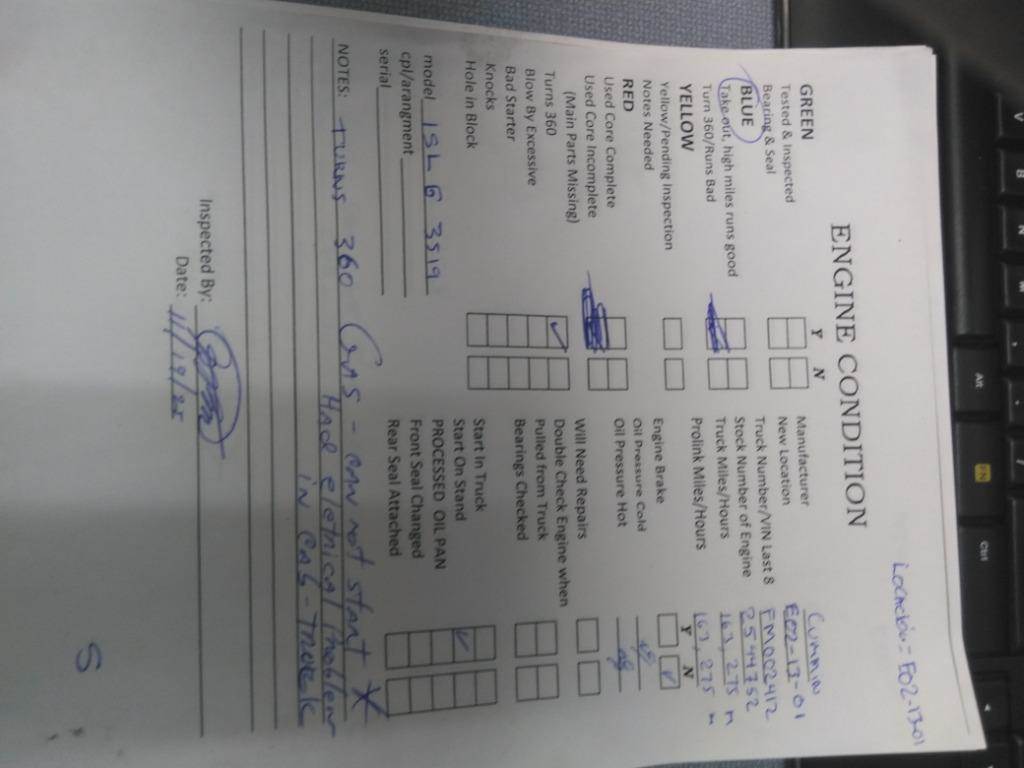 Location = E02-13-01
ENGINE CONDITION
Y N
GREEN
Tested & Inspected
Bearing & Seal
BLUE
Take out, high miles runs good
Turn 360/Runs Bad
YELLOW
Yellow/Pending Inspection
Notes Needed
RED
Used Core Complete
Used Core Incomplete
(Main Parts Missing)
Turns 360 ✓
Blow By Excessive
Bad Starter
Knocks
Hole in Block
model ISL G 3519
cpl/arangment
serial
Manufacturer Cummins
New Location E02-13-01
Truck Number/VIN Last 8 FM002412
Stock Number of Engine 2544752
Truck Miles/Hours 163,275 m
Prolink Miles/Hours 163,275 m
Y N
Engine Brake ✓
Oil Pressure Cold
Oil Pressure Hot
Will Need Repairs
Double Check Engine when
Pulled from Truck
Bearings Checked
Start in Truck
Start On Stand ✓
PROCESSED OIL PAN
Front Seal Changed
Rear Seal Attached
NOTES: TURNS 360 GAS - CAN not start X
Had eletrical Problem
in CAB - Truck
Inspected By:
Date: 11/19/25
S
Alt
Ctrl